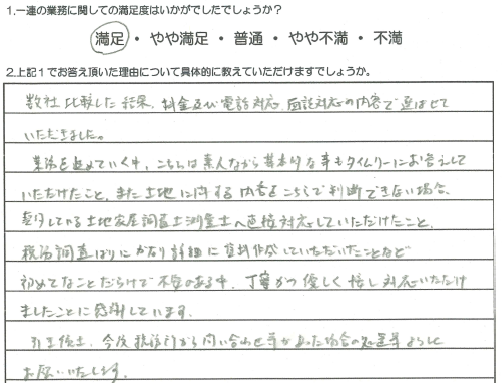 1.一連の業務に関しての満足度はいかがでしたでしょうか?
満足 ・ やや満足 ・ 普通 ・ やや不満 ・ 不満
2.上記1でお答え頂いた理由について具体的に教えていただけますでしょうか。
数社比較した結果、料金及び電話対応、面談対応の内容で選ばせて
いただきました。
業務を進めていく中、こちらは素人ながら基本的な事もタイムリーにお答えして
いただけたこと、また土地に関する内容をこちらで判断できない場合、
委任している土地家屋調査士測量士へ直接対応していただけたこと、
税務調査ばりにかなり詳細に資料作成していただいたことなど
初めてなことだらけで不安のある中、丁寧かつ優しく接し対応いただけ
ましたことに感謝しています。
引き続き、今後税務所から問い合わせ等があった場合の処置等よろしく
お願いいたします。